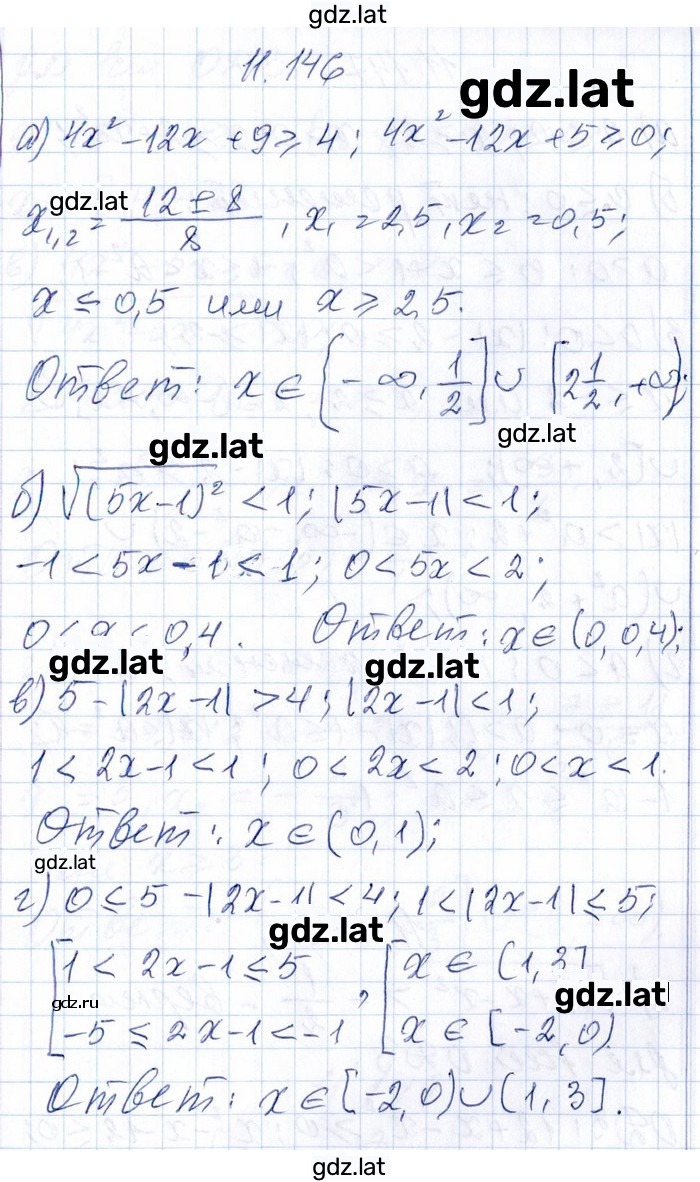 gdz.lat
11.146
gdz.lat
а) 4x² - 12x + 9 ⩾ 4; 4x² - 12x + 5 ⩾ 0;
gdz.lat
x₁,₂ = (12 ± 8)/8, x₁ = 2,5, x₂ = 0,5;
x ≤ 0,5 или x ⩾ 2,5.
Ответ: x ∈ (-∞, 1/2] ∪ [2 1/2, +∞);
gdz.lat
gdz.lat
б) √(5x-1)² < 1; |5x-1| < 1;
-1 < 5x - 1 < 1; 0 < 5x < 2;
0 < x < 0,4. Ответ: x ∈ (0, 0,4);
gdz.lat gdz.lat
в) 5 - |2x-1| > 4; |2x-1| < 1;
1 < 2x-1 < 1; 0 < 2x < 2; 0 < x < 1.
Ответ: x ∈ (0,1);
gdz.lat
г) 0 ≤ 5 - |2x-1| < 4; 1 < |2x-1| ≤ 5;
gdz.lat
[1 < 2x-1 ≤ 5 , [x ∈ (1,3]
gdz.ru gdz.lat
-5 ≤ 2x-1 < -1 x ∈ [-2,0)
Ответ: x ∈ [-2,0) ∪ (1,3].
gdz.lat